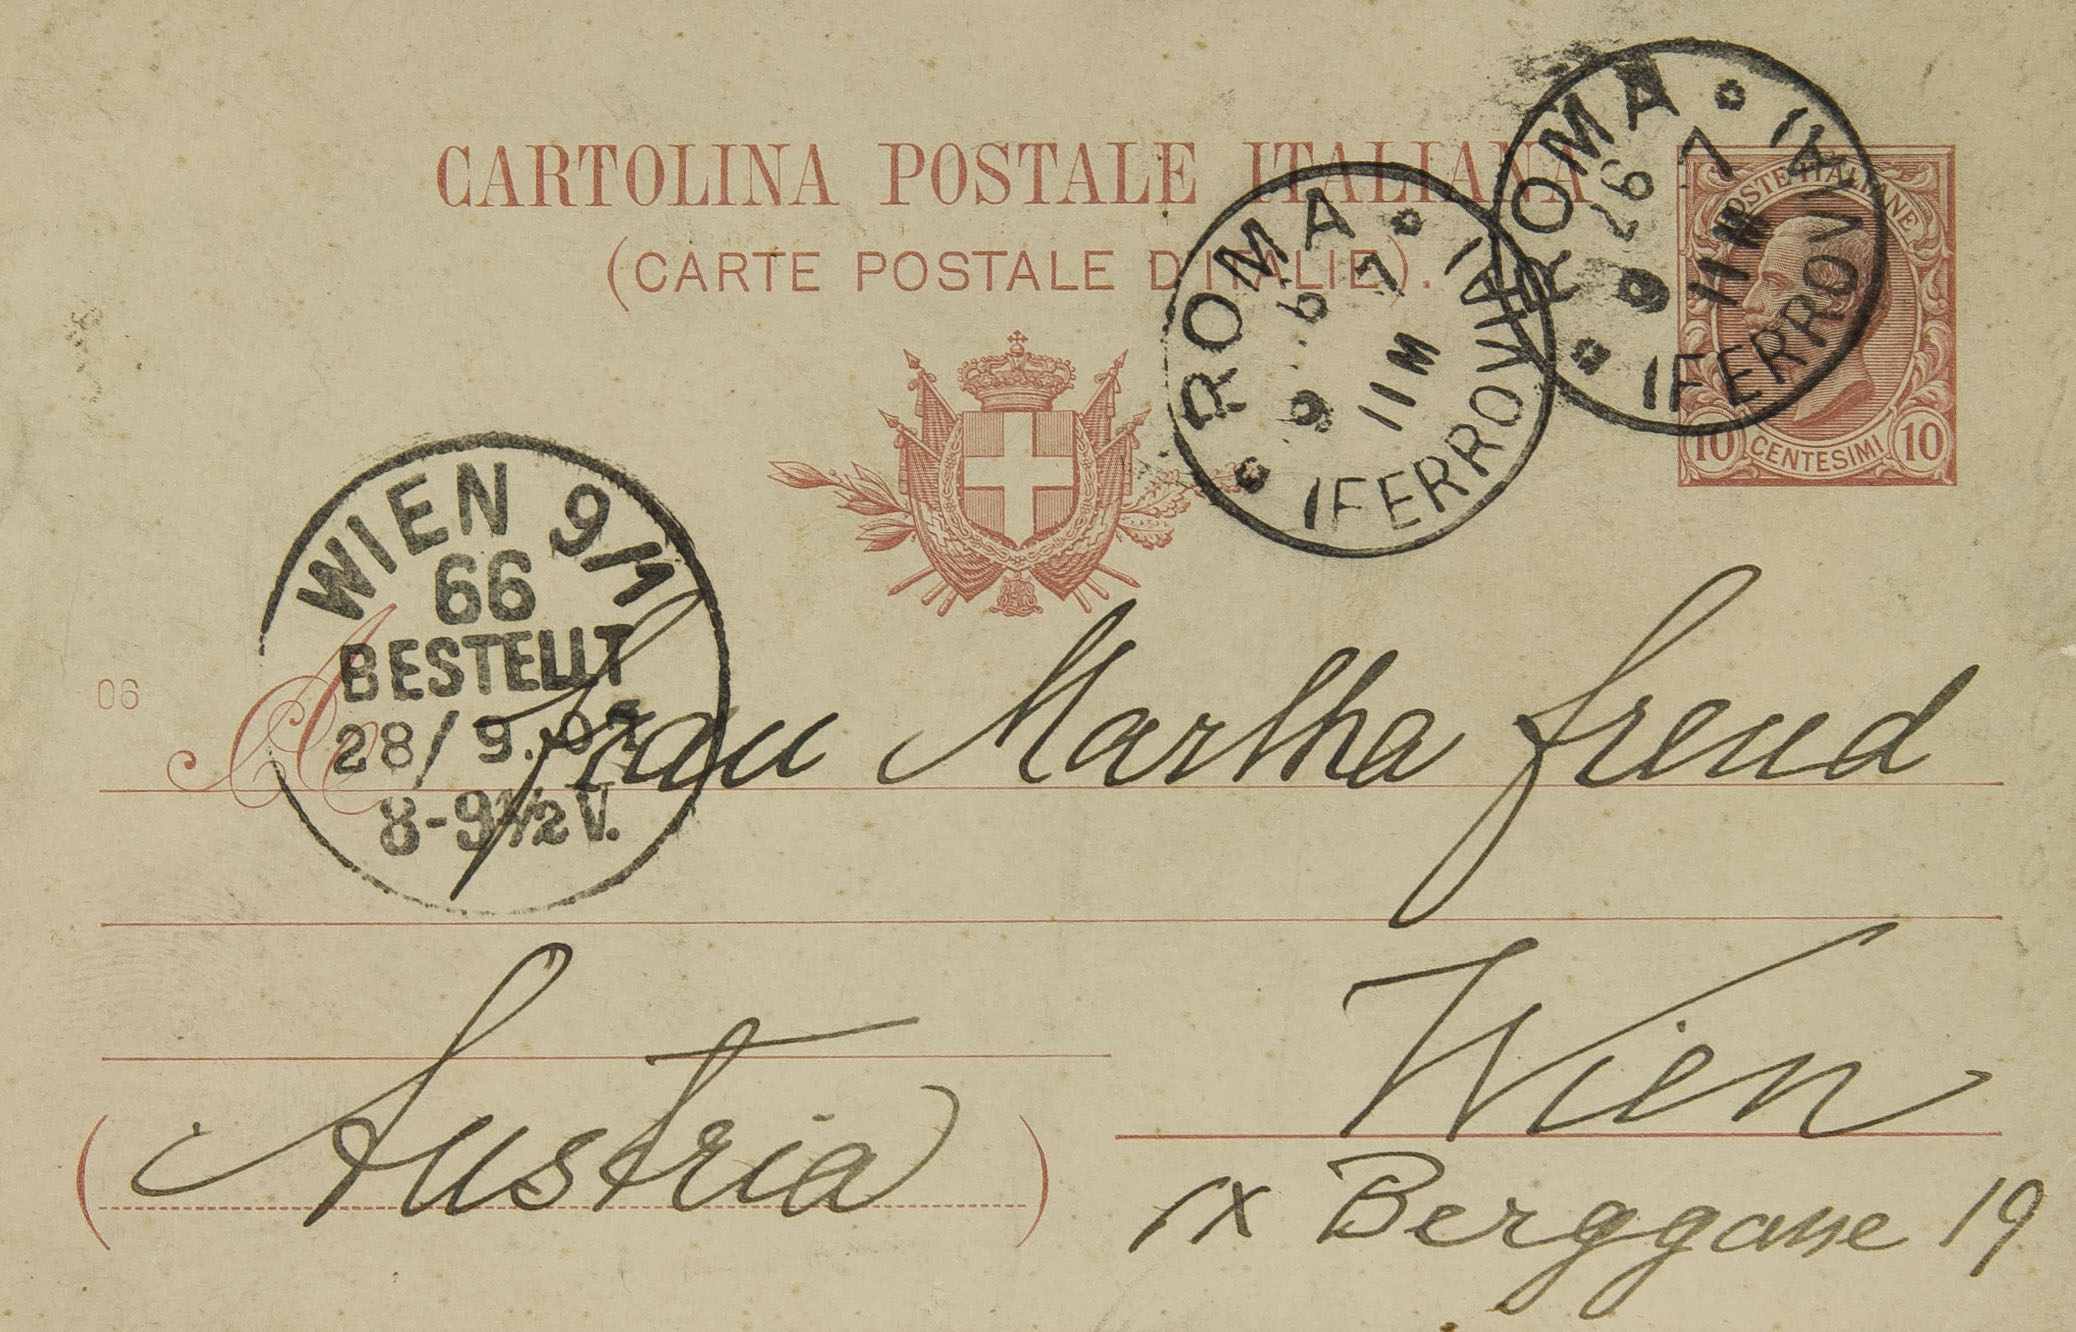 CARTOLINA POSTALE ITALIANA
(CARTE POSTALE D'ITALIE).
POSTE ITALIANE
10 CENTESIMI 10
ROMA
26 9 7
11 M
(FERROVIA)
ROMA
6 9 7
11 M
(FERROVIA)
WIEN 9/1
66
BESTELLT
28/9.07
8-9½V.
06
A Frau Martha Freud
Wien
(Austria)
IX Berggasse 19